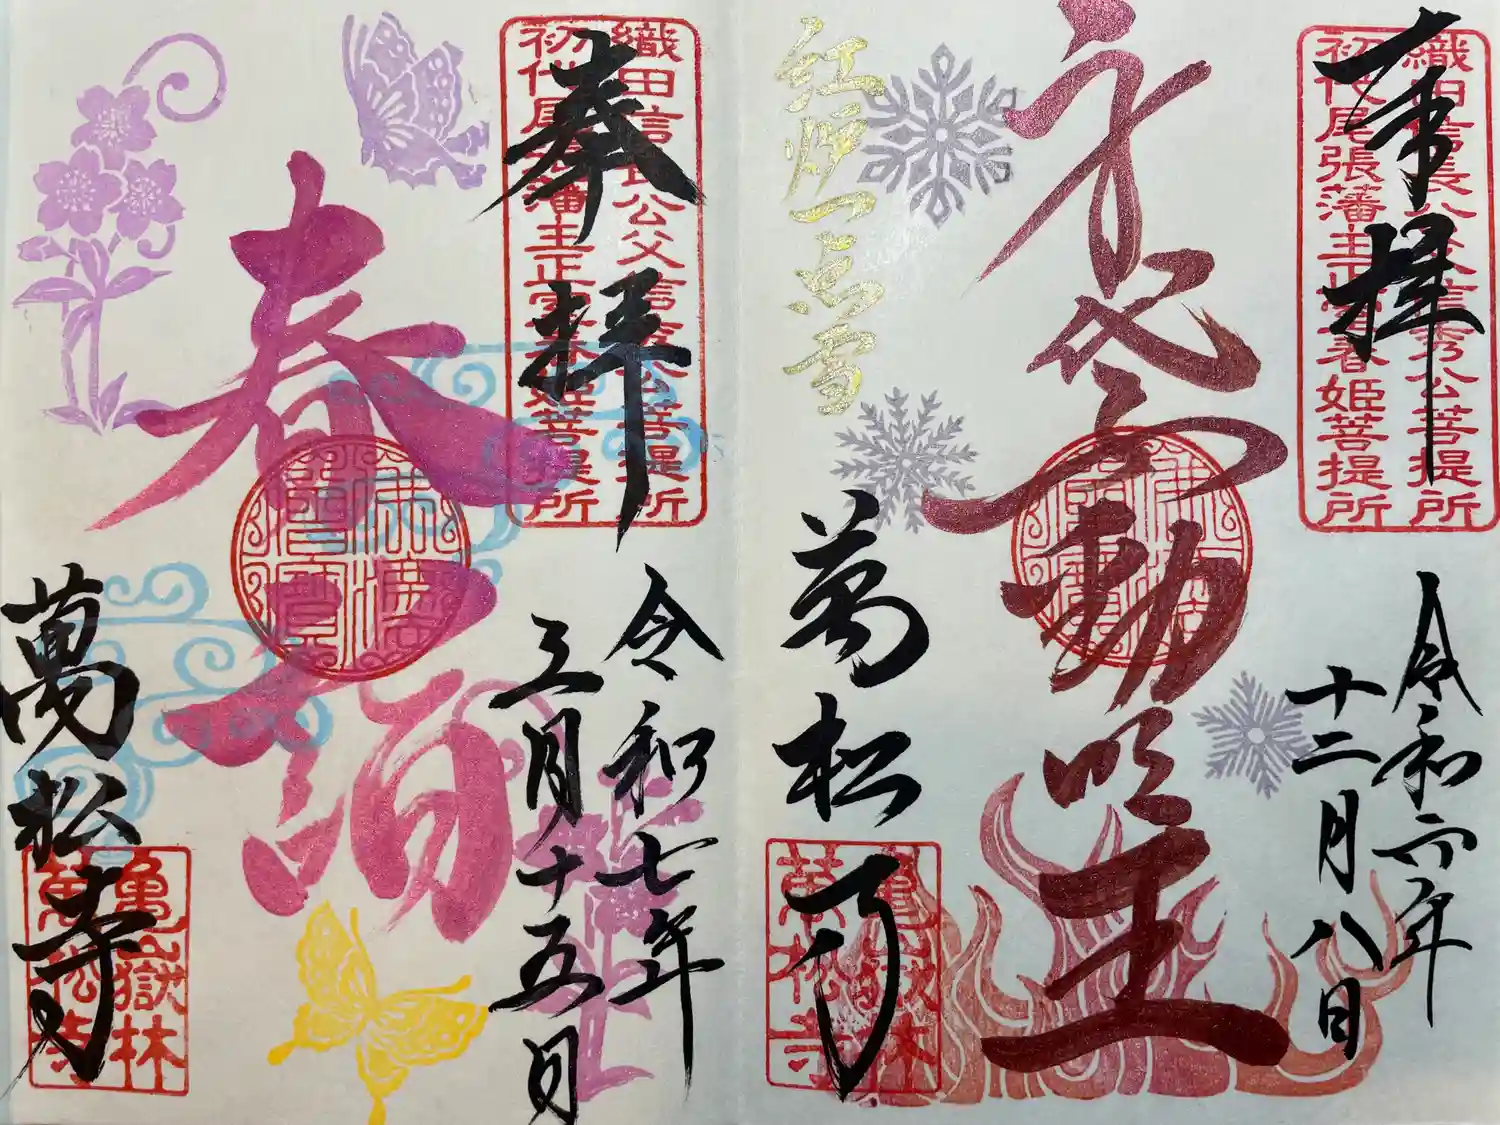 織田信長公父信秀公菩提所
初代尾張藩主正室春姫菩提所
奉拝
令和六年
十二月八日
身代不動明王
佛法僧寶
紅炉一点雪
萬松寺
龜嶽林
萬松寺
織田信長公父信秀公菩提所
初代尾張藩主正室春姫菩提所
奉拝
令和七年
三月十五日
春詣
佛法僧寶
萬松寺
龜嶽林
萬松寺